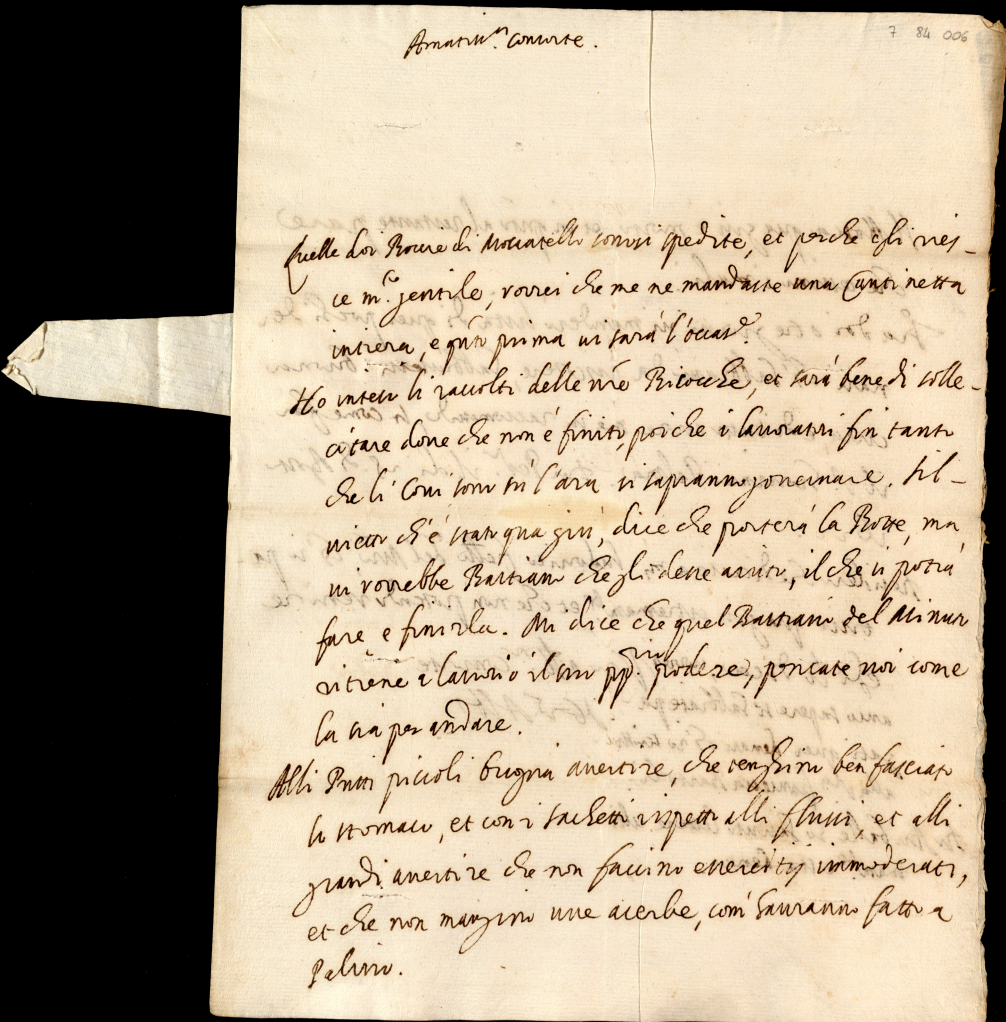 7 84 006
Amatiss.ᵐ consorte.
Quelle doi Bocce di Moscatello sonosi spedite, et perche egli ries-
ce m.ᵒ gentile, vorrei che me ne mandaste una Cantinetta
intiera, e q̃to prima vi sarà l'occas.ᵉ
Ho inteso li racolti delle nr̃e Bicocche, et sarà bene di solle-
citare dove che non è finito, poiche i lavoratori fin tanto
che li Covi sono sù l'ara si sapranno joncinare. Sil-
vietto ch'è stato qua giù, dice che porterà la Botte, ma
vi vorrebbe Bastiano che gli desse aiuto, il che si potrà
fare e finirla. Mi dice che quel Bastiano del
ritiene à lavorio il suo pp.ʳⁱᵒ podere, pensate voi come
la sia per andare.
Alli Putti piccoli bisogna avertire, che tenghino ben fasciato
lo stomaco, et con i sachetti rispetto alli flussi, et alli
grandi avertire che non faccino essercitij immoderati,
et che non mangino uve acerbe, com'hauranno fatto a
Paliano.